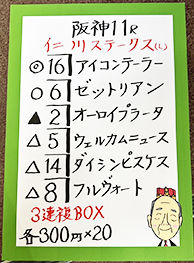 阪神11R
仁川ステークス(L)
◎ 16 アイコンテーラー
○ 6 ゼットリアン
▲ 2 オーロイプラータ
△ 5 ウェルカムニュース
△ 14 ダイシンピスケス
△ 8 フルヴォート
3連複BOX
各300円×20